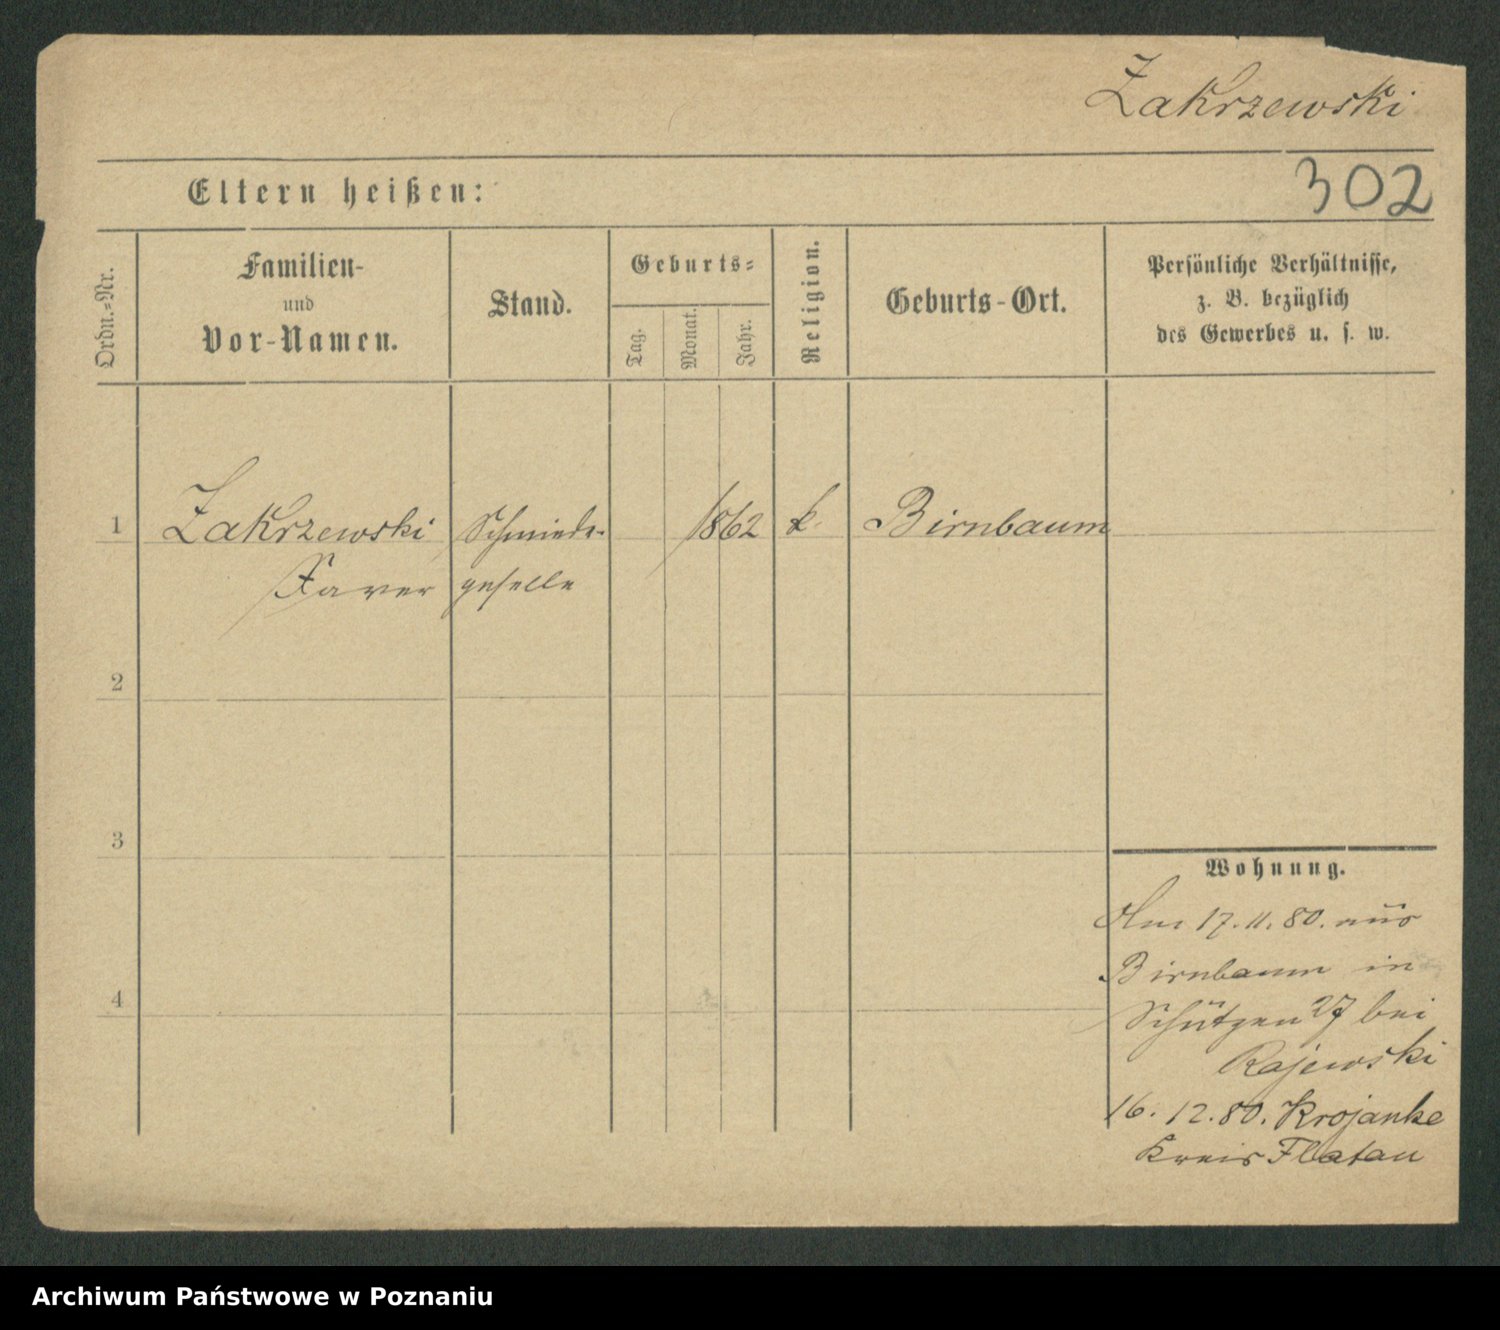 Zakrzewski
302
Eltern heißen:
Ordn.-Nr.
Familien-
und
Vor-Namen.
Stand.
Geburts-
Tag.
Monat.
Jahr.
Religion.
Geburts-Ort.
Persönliche Verhältnisse,
z. B. bezüglich
des Gewerbes u. s. w.
1 Zakrzewski Schmiede- 1862 k. Birnbaum
Xaver geselle
2
3
4
Wohnung.
Am 17.11.80. aus
Birnbaum in
Schützen 27 bei
Rajewski
16. 12. 80. Krojanke
Kreis Flatau
Archiwum Państwowe w Poznaniu